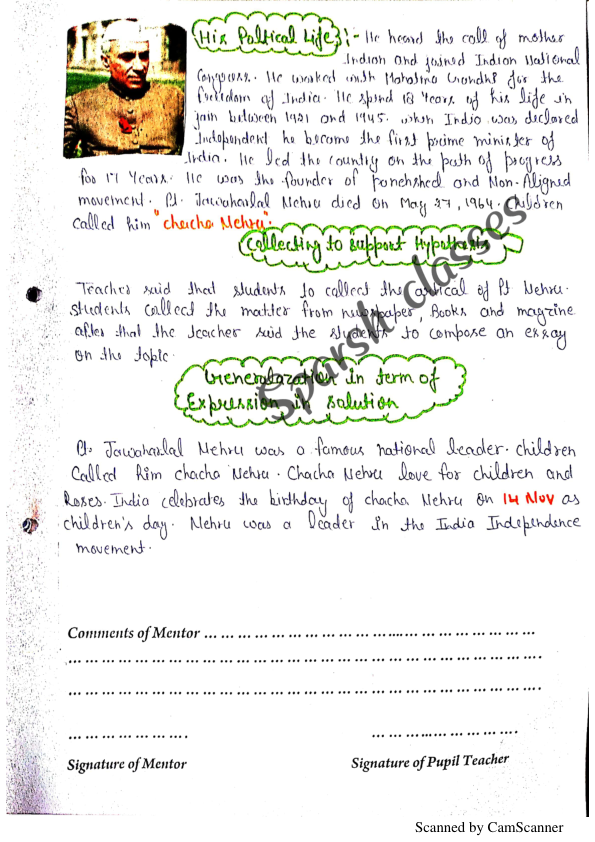 His Poltical Life :- He heard the call of mother
Indian and joined Indian National
Congress. He worked with Mahatma Gandhi for the
freedom of India. He spend 18 Years of his life in
jain between 1921 and 1945. when India was declared
Independent he became the first prime minister of
India. He led the country on the path of progress
for 17 Years. He was the founder of panchshed and Non-Aligned
movement. Pt. Jawaharlal Nehru died on May 27, 1964. Children
called him "chacha Nehru".
Collecting to support Hypothesis
Teacher said that students to collect the artical of Pt Nehru.
students collect the matter from newspaper, Books and magzine
after that the teacher said the students to compose an essay
on the topic.
Sparsh classes
Generalazation in term of
Expression in salution
Pt. Jawaharlal Nehru was a famous national leader. children
Called him chacha Nehru. Chacha Nehru love for children and
Roses. India celebrates the birthday of chacha Nehru on 14 Nov as
children's day. Nehru was a leader in the India Independence
movement.
Comments of Mentor
Signature of Mentor
Signature of Pupil Teacher
Scanned by CamScanner